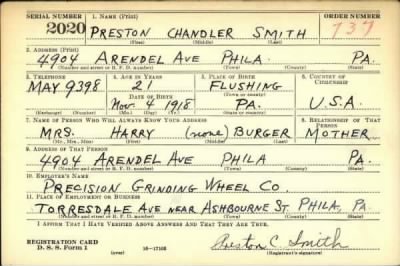 SERIAL NUMBER 1. NAME (Print) ORDER NUMBER
2020 PRESTON CHANDLER SMITH 737
(First) (Middle) (Last)
2. ADDRESS (Print)
4904 ARENDEL AVE PHILA. PA.
(Number and street or R. F. D. number) (Town) (County) (State)
3. TELEPHONE 4. AGE IN YEARS 5. PLACE OF BIRTH 6. COUNTRY OF CITIZENSHIP
MAY 9398 21 FLUSHING
DATE OF BIRTH (Town or county)
Nov. 4 1918 PA. U.S.A.
(Exchange) (Number) (Mo.) (Day) (Yr.) (State or country)
7. NAME OF PERSON WHO WILL ALWAYS KNOW YOUR ADDRESS 8. RELATIONSHIP OF THAT PERSON
MRS. HARRY (none) BURGER MOTHER
(Mr., Mrs., Miss) (First) (Middle) (Last)
9. ADDRESS OF THAT PERSON
4904 ARENDEL AVE PHILA PA.
(Number and street or R. F. D. number) (Town) (County) (State)
10. EMPLOYER'S NAME
PRECISION GRINDING WHEEL CO.
11. PLACE OF EMPLOYMENT OR BUSINESS
TORRESDALE AVE NEAR ASHBOURNE ST. PHILA, PA.
(Number and street or R. F. D. number) (Town) (County) (State)
I AFFIRM THAT I HAVE VERIFIED ABOVE ANSWERS AND THAT THEY ARE TRUE.
REGISTRATION CARD
D. S. S. Form 1 (over) 16—17105 Preston C. Smith
(Registrant's signature)